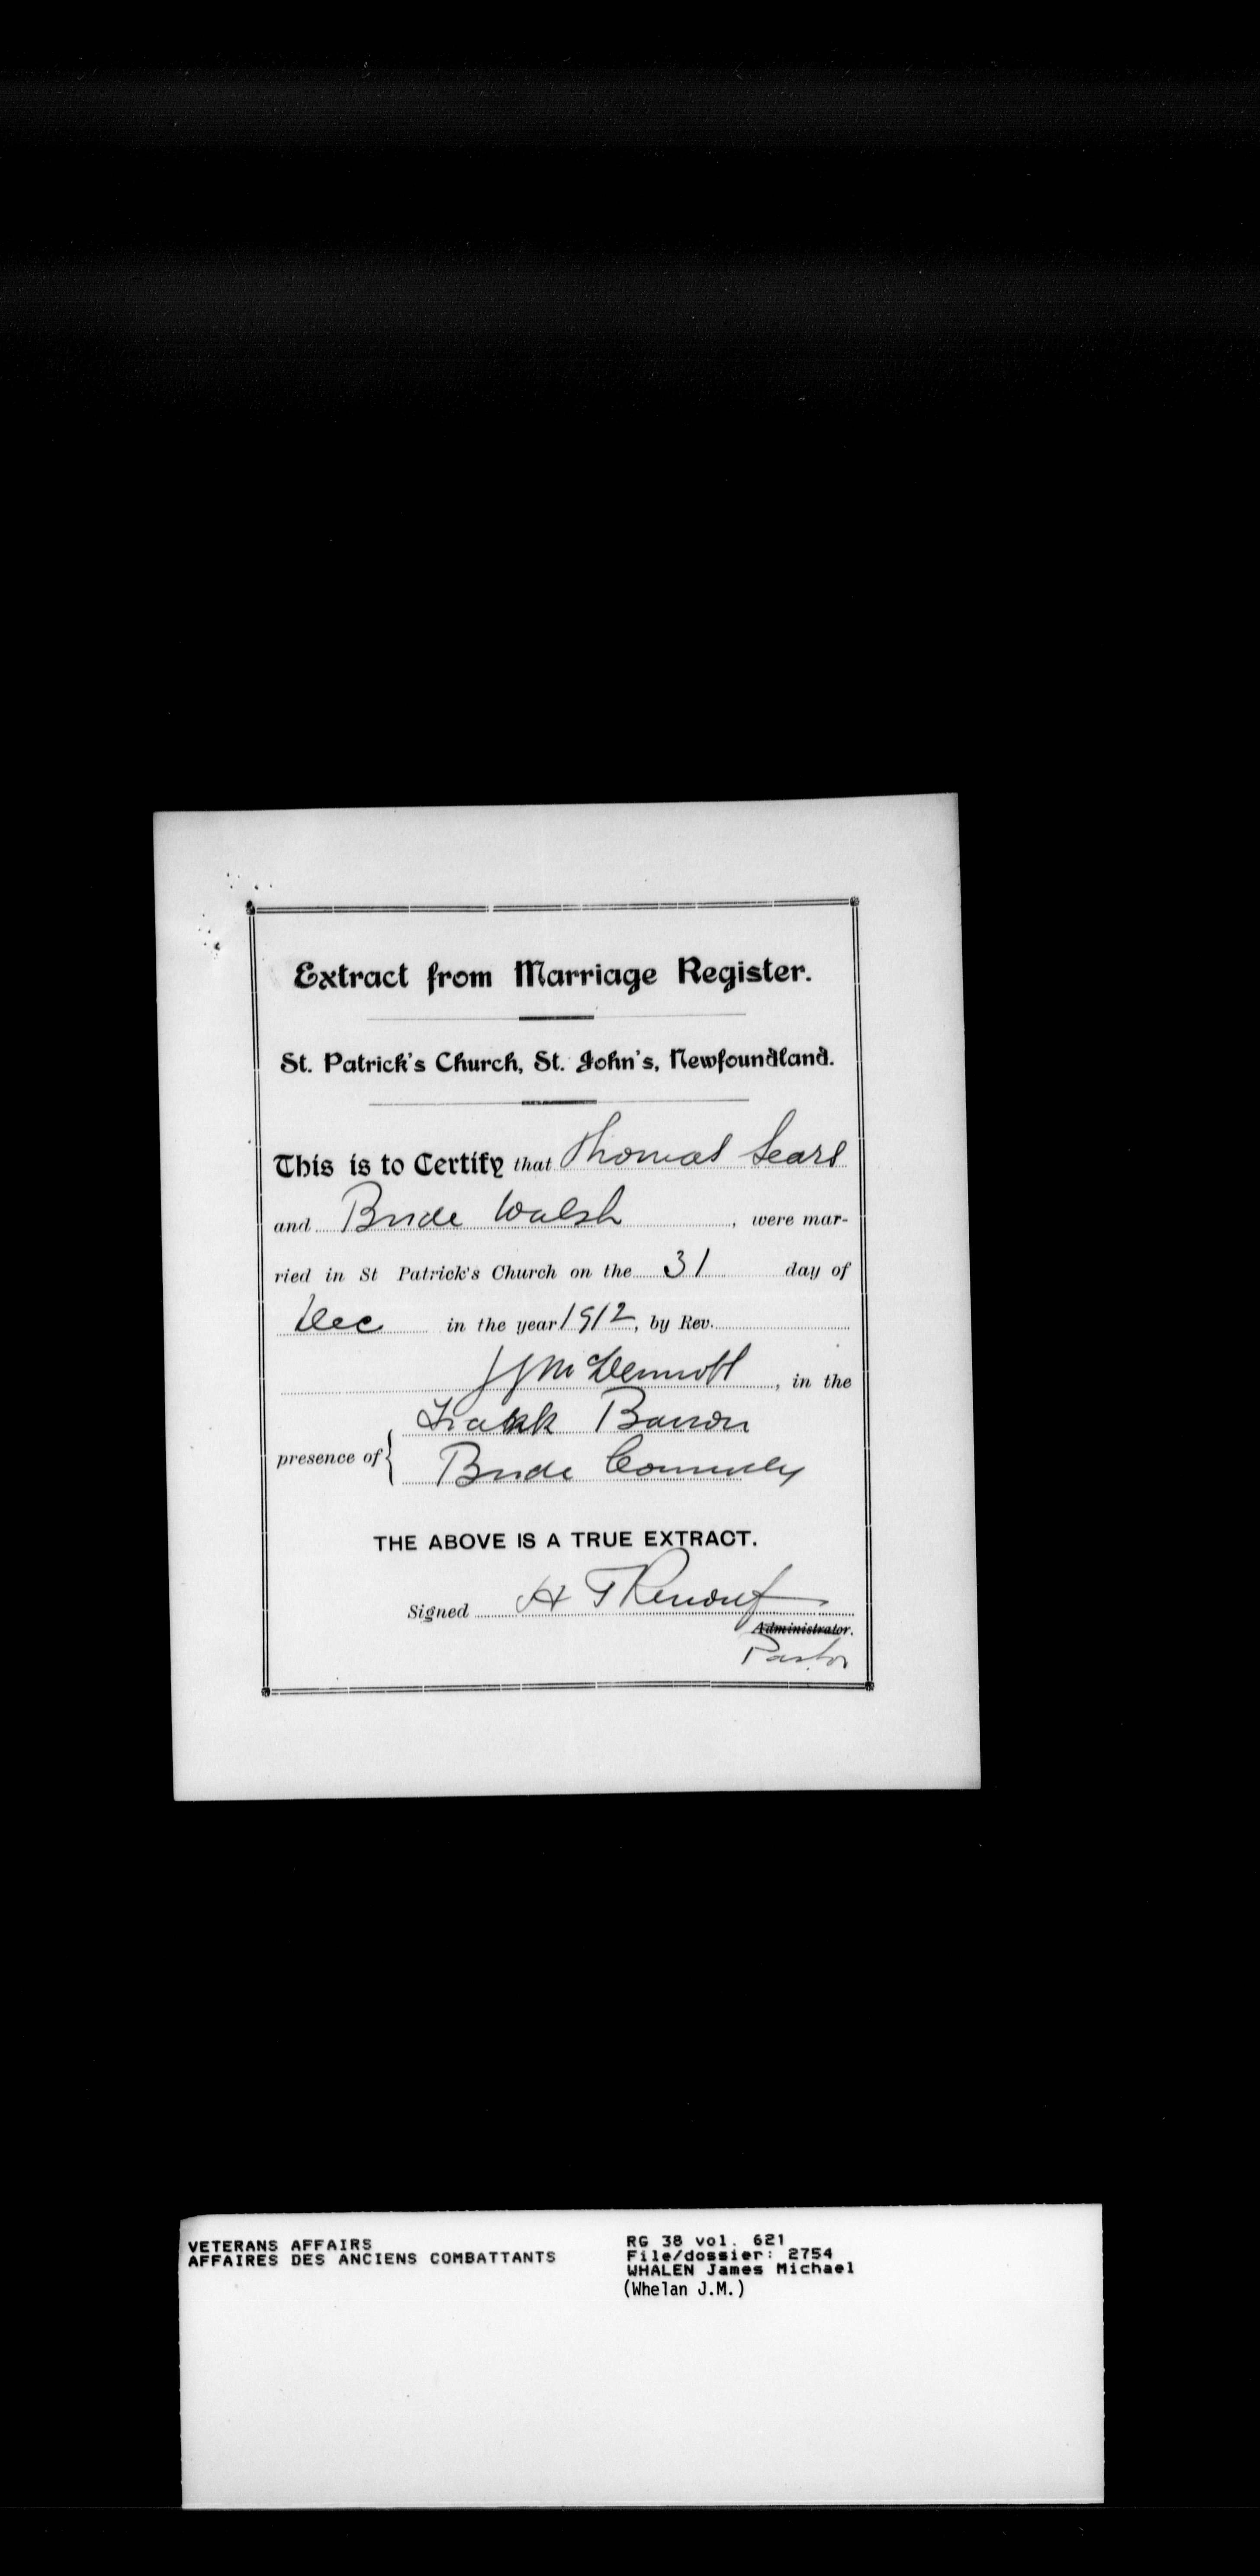 Extract from Marriage Register.
St. Patrick's Church, St. John's, Newfoundland.
This is to Certify that Thomas Sears
and Bride Walsh, were mar-
ried in St Patrick's Church on the 31 day of
Dec in the year 1912, by Rev.
J J McDermott, in the
Frank Barron
presence of {
Bride Connolly
THE ABOVE IS A TRUE EXTRACT.
Signed H T Renouf
Administrator.
Pastor
VETERANS AFFAIRS
AFFAIRES DES ANCIENS COMBATTANTS
RG 38 vol. 621
File/dossier: 2754
WHALEN James Michael
(Whelan J.M.)